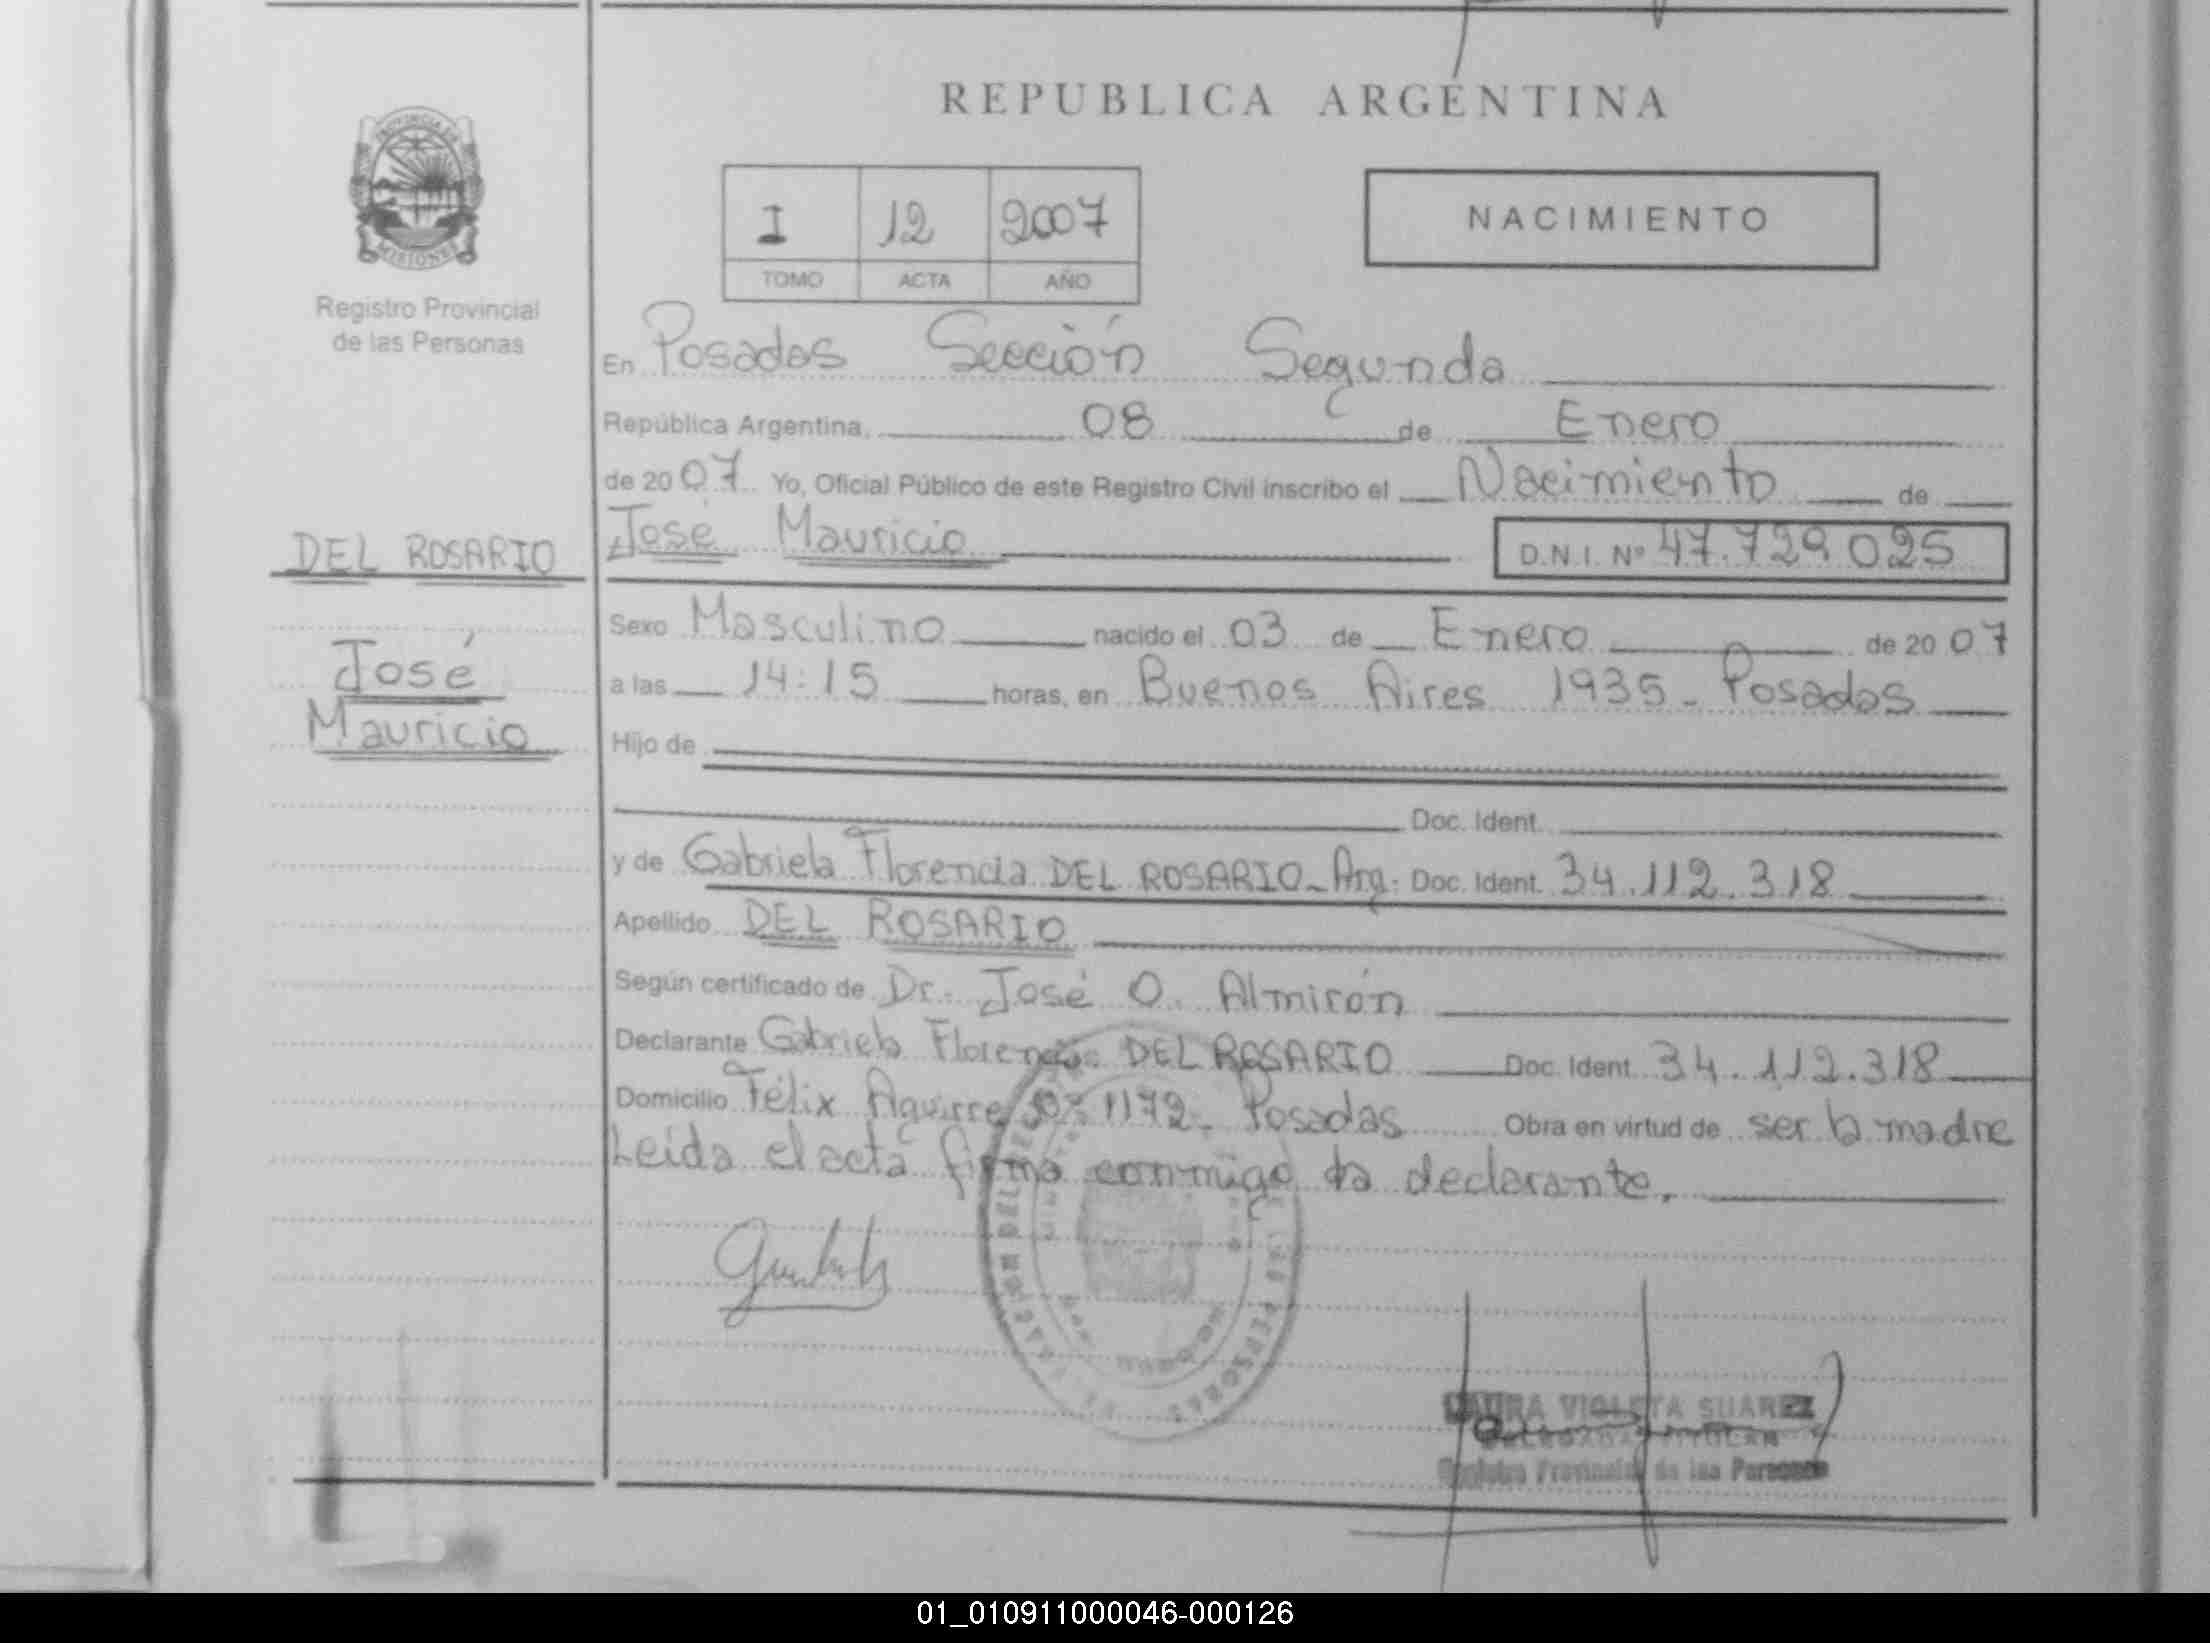 REPUBLICA ARGENTINA
PROVINCIA DE MISIONES
Registro Provincial
de las Personas
I 12 2007
TOMO ACTA AÑO
NACIMIENTO
En Posadas Sección Segunda
República Argentina, 08 de Enero
de 2007 Yo, Oficial Público de este Registro Civil inscribo el Nacimiento de
José Mauricio D.N.I. Nº 47.729.025
DEL ROSARIO
José
Mauricio
Sexo Masculino nacido el 03 de Enero de 2007
a las 14:15 horas, en Buenos Aires 1935 - Posadas
Hijo de
Doc. Ident.
y de Gabriela Florencia DEL ROSARIO - Arg. Doc. Ident. 34.112.318
Apellido DEL ROSARIO
Según certificado de Dr. José O. Almirón
Declarante Gabriela Florencia DEL ROSARIO Doc. Ident. 34.112.318
Domicilio Félix Aguirre Nº 1172 - Posadas Obra en virtud de ser la madre
Leída el acta firma conmigo la declarante.
LAURA VIOLETA SUAREZ
DELEGADA TITULAR
Registro Provincial de las Personas
01_010911000046-000126